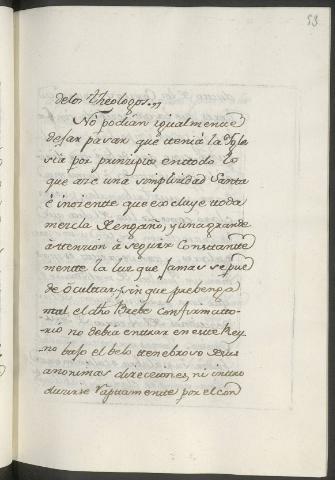 53
delos theologos.,,
No podian igualmente
dejar pasar que tenia la Ygle
sia por principio entodo lo
que ase una simplicidad Santa
è inocente que excluye toda
mezcla de engaño, y una grande
àttencion à seguir Constante
mente la luz que jamas se pue
de ocultar, sin que prebenga
tal el dho Brebe confirmatto-
rio no debia entrar en este Rey
no bajo el belo tenebroso de sus
anonimas direcciones, ni intro
ducirse raptamente por el con